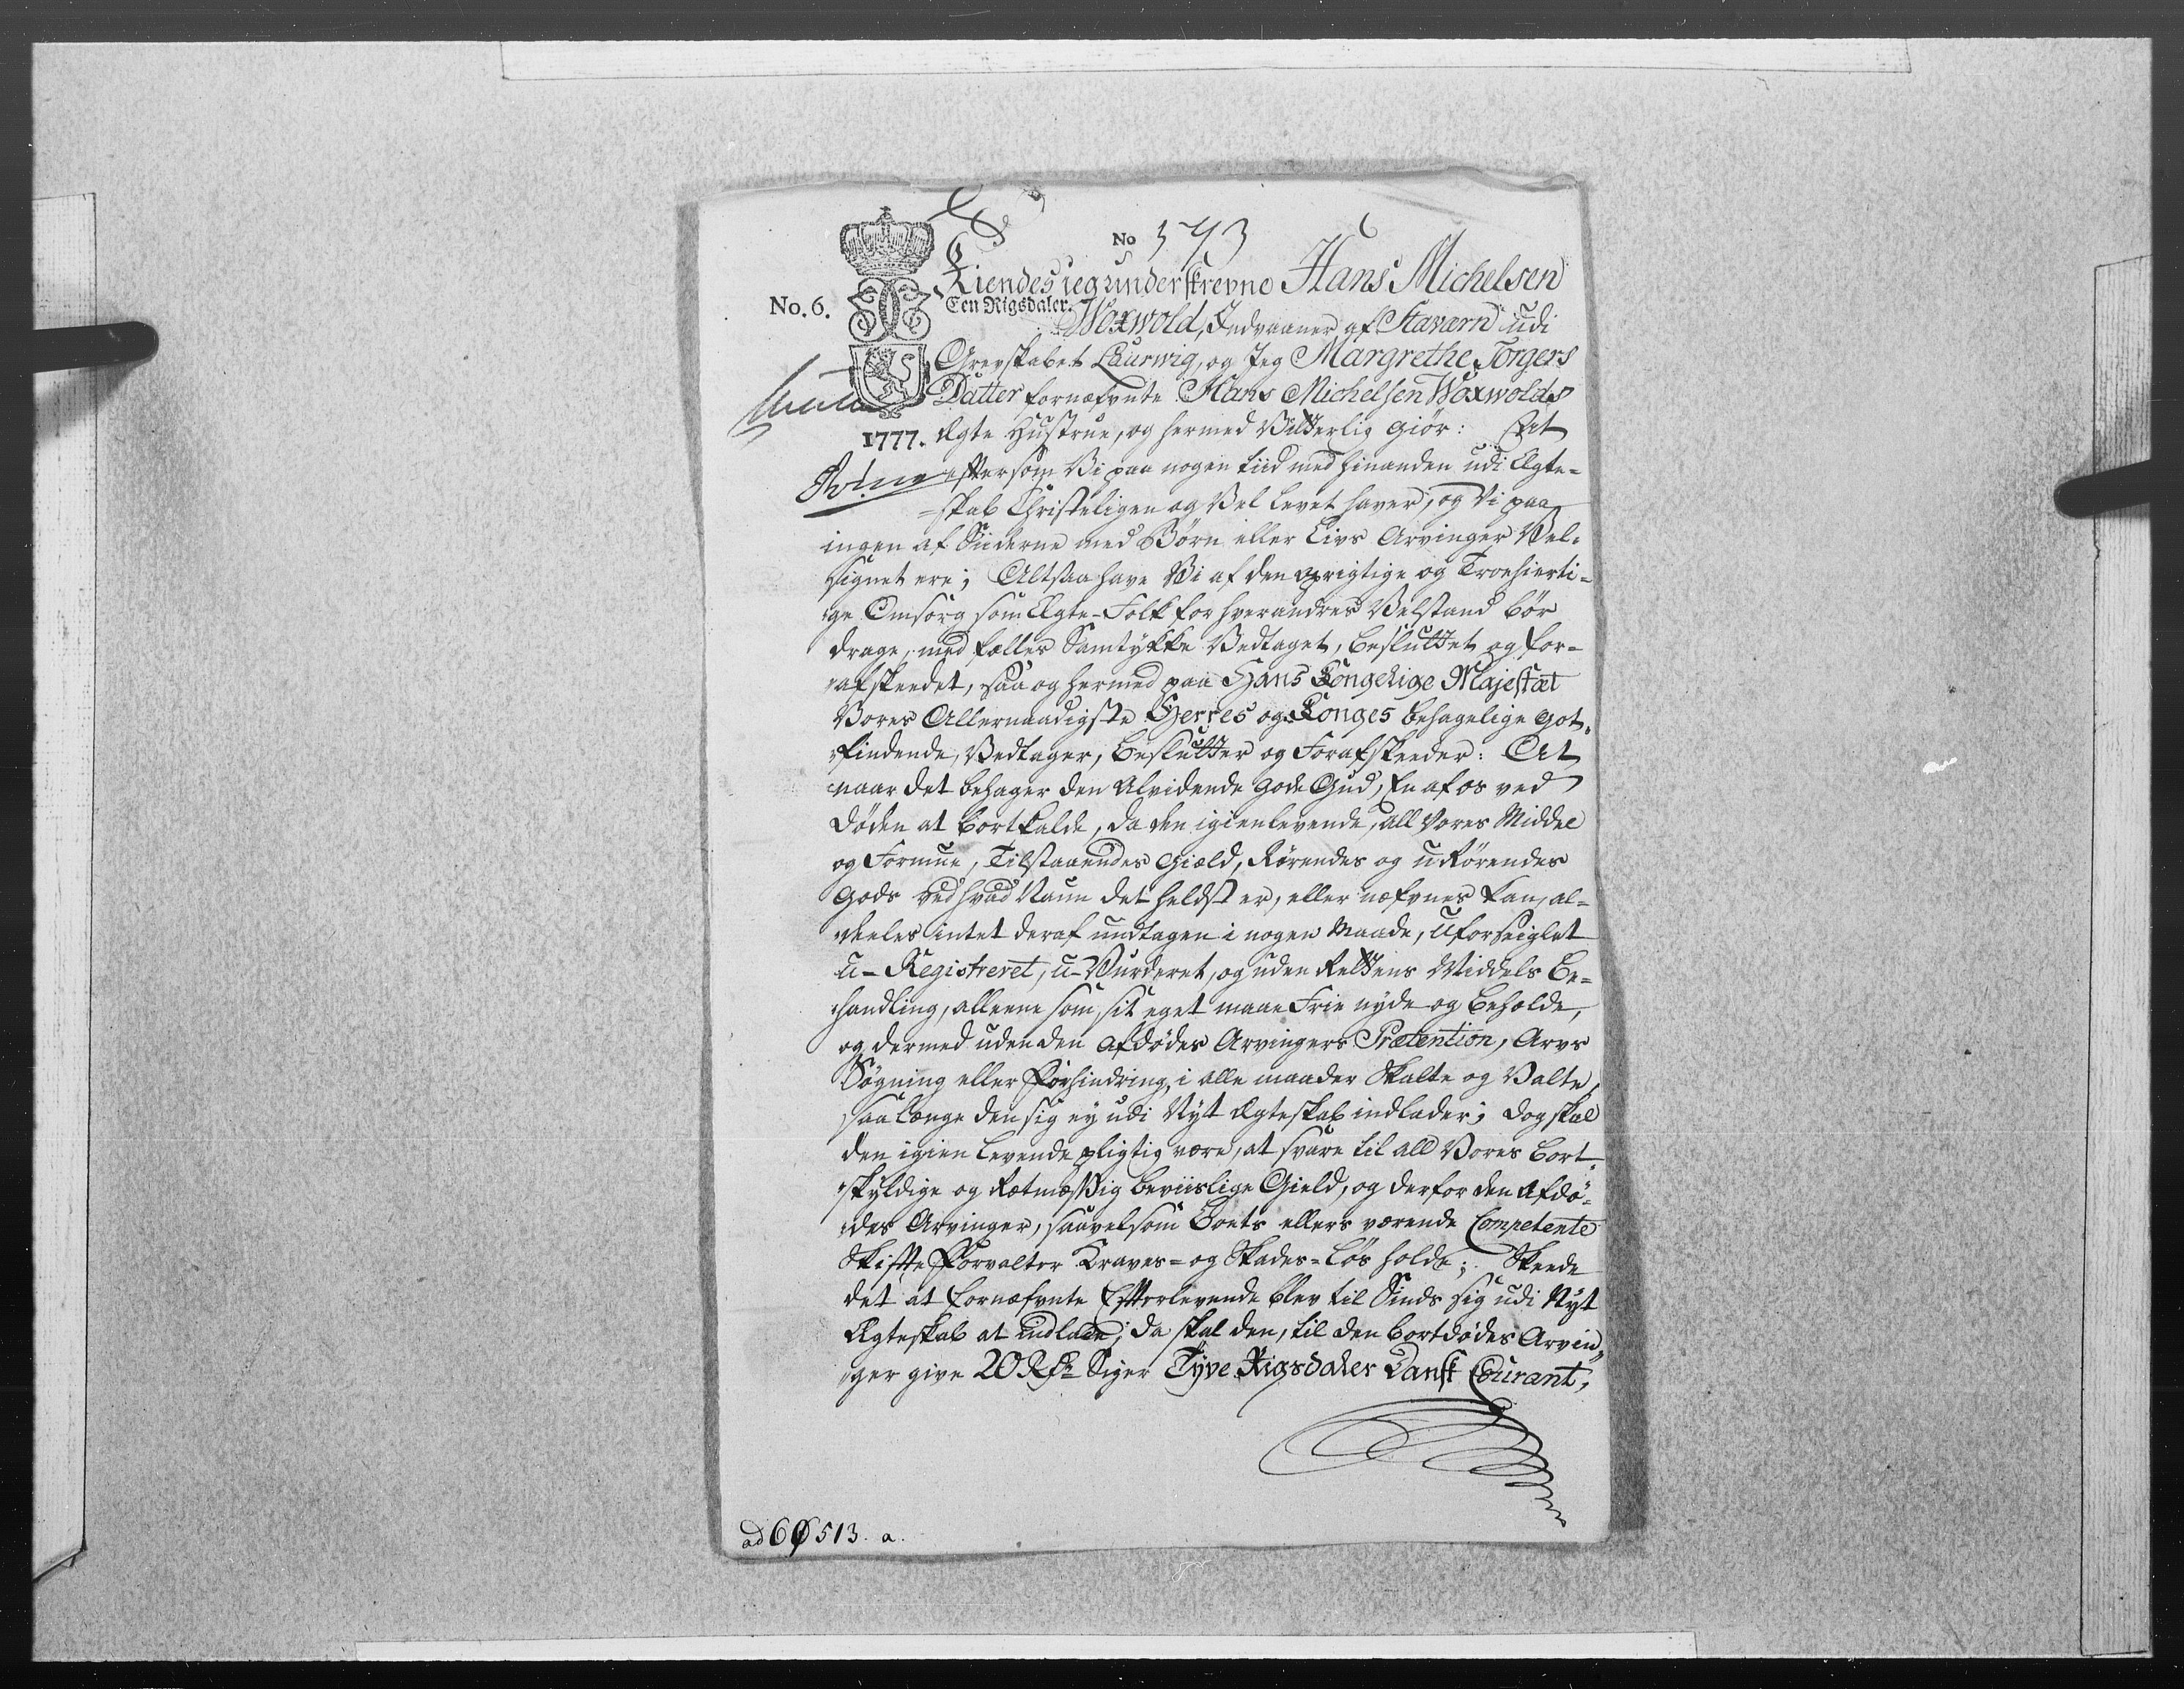 No 573
Kiendes ieg underskrevne Hans Michelsen
No. 6. Een Rigsdaler.
Woxwold, Indvaaner af Staværn udi
Grevskabet Laurwig, og Jeg Margrethe Torgers
Datter fornæfvnte Hans Michelsen Woxwolds
1777. Ægte Hustrue, og hermed Vitterlig giør: At
eftersom Vi paa nogen tiid med hinanden udi Ægte-
-skab Christeligen og Vel levet haver, og Vi paa
ingen af Siiderne med Børn eller Livs Arvinger Vel-
signet ere; Altsaa have Vi af den oprigtige og Troehierti-
ge Omsorg som Ægte-Folk for hverandres Velstand bør
drage, med fælles Samtykke Vedtaget, besluttet og for-
afskeedet, saa og hermed paa Hans Kongelige Majestæt
Vores Allernaadigste Herres og Konges behagelige got-
findende, Vedtager, beslutter og Forafskeeder: At
naar det behager den Alvidende gode Gud, En af os ved
Døden at bortkalde, da den igienlevende, all Vores Middel
og Formue, Tilstaaendes Gield, Rørendes og uRørendes
Gods ved hvad Navn det heldst er, eller næfvnes kan, al-
deeles intet deraf undtagen i nogen Maade, Uforseiglet
u-Registreret, u-Vurderet, og uden Rettens Middels be-
handling, alleene som sit eget maae Frie nyde og beholde,
og dermed uden den Afdødes Arvingers Prætention, Arvs
Søgning eller Forhindring, i alle maader Skalte og Valte,
saa længe den sig ey udi Nyt Ægteskab indlader; dog skal
den igien levende pligtig være, at svare til all Vores bort-
skyldige og Retmæssig beviislige Gield, og derfor den Afdø-
des Arvinger, saavelsom Boets ellers værende Competente
Skifte Forvalter Kraves- og Skades-løs holde; Skeede
det at fornæfvnte Efterlevende blev til Sinds sig udi Nyt
Ægteskab at indlade; da skal den, til den bortdødes Arvin-
ger give 20 Rdr Siger Tyve Rigsdaler Dansk Courant,
ad 60513. a.